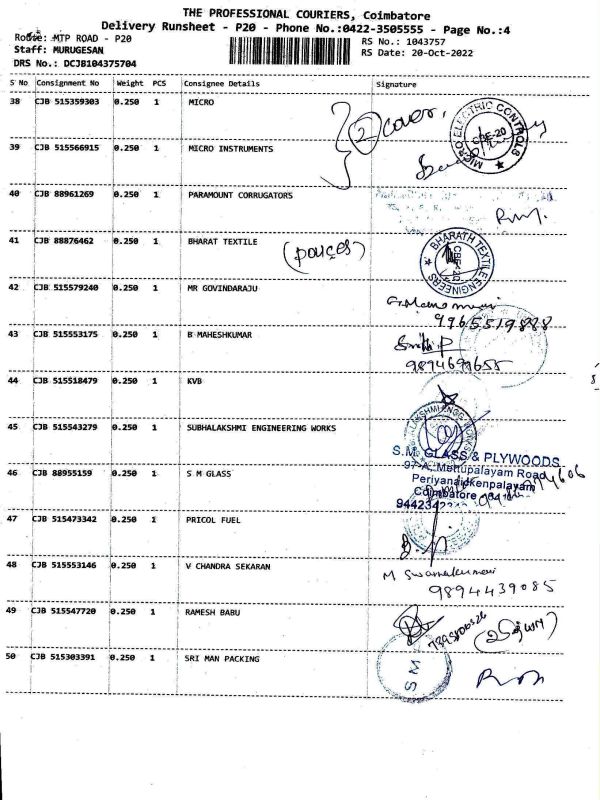 THE PROFESSIONAL COURIERS, Coimbatore
Delivery Runsheet - P20 - Phone No.:0422-3505555 - Page No.:4
Route: MTP ROAD - P20
RS No.: 1043757
Staff: MURUGESAN
RS Date: 20-Oct-2022
DRS No.: DCJB104375704
S No Consignment No Weight PCS Consignee Details Signature
38 CJB 515359303 0.250 1 MICRO
2 cover.
MICRO ELECTRIC CONTROLS
CBE-20
39 CJB 515566915 0.250 1 MICRO INSTRUMENTS
40 CJB 88961269 0.250 1 PARAMOUNT CORRUGATORS
41 CJB 88876462 0.250 1 BHARAT TEXTILE
BHARATH TEXTILE ENGINEERS
CBE-20
42 CJB 515579240 0.250 1 MR GOVINDARAJU
9965519888
43 CJB 515553175 0.250 1 B MAHESHKUMAR
44 CJB 515518479 0.250 1 KVB
45 CJB 515543279 0.250 1 SUBHALAKSHMI ENGINEERING WORKS
S.M. GLASS & PLYWOODS
46 CJB 88955159 0.250 1 S M GLASS
97-A, Mettupalayam Road
Periyanaickenpalayam
Coimbatore
47 CJB 515473342 0.250 1 PRICOL FUEL
48 CJB 515553146 0.250 1 V CHANDRA SEKARAN
9894439085
49 CJB 515547720 0.250 1 RAMESH BABU
50 CJB 515303391 0.250 1 SRI MAN PACKING
S M